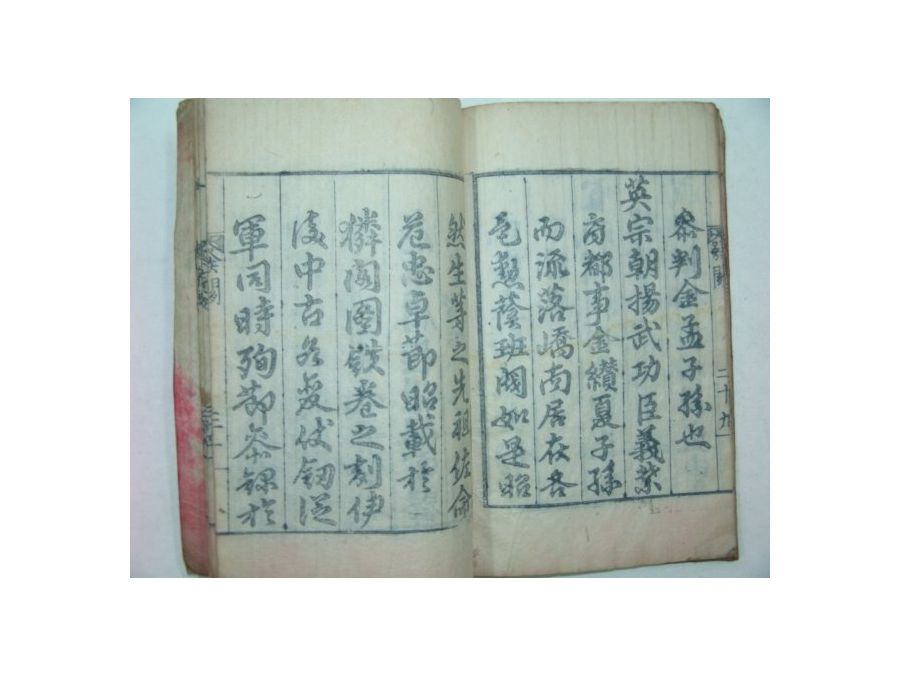 參判金孟子孫也
英宗朝揚武功臣義禁
府都事金纘夏子孫
而流落嶠南居在各
邑勳蔭班閥如是昭
然生等之先祖佐命
范忠卓節昭載於
獜閣圖鉄卷之刻伊
後中古名
軍同時殉節錄於
二十九